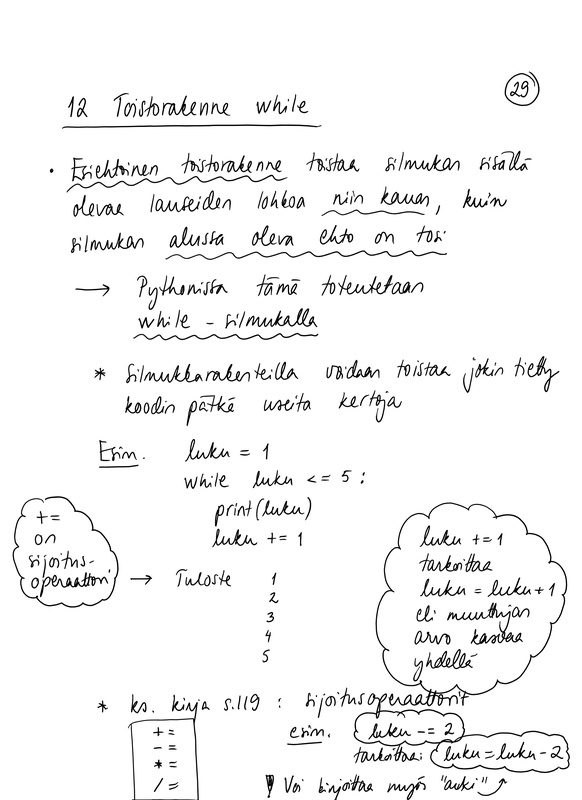 29
12 Toistorakenne while
• Esiehtoinen toistorakenne toistaa silmukan sisällä
olevaa lauseiden lohkoa niin kauan, kuin
silmukan alussa oleva ehto on tosi
→ Pythonissa tämä toteutetaan
while - silmukalla
* silmukkarakenteilla voidaan toistaa jokin tietty
koodin pätkä useita kertoja
Esim. luku = 1
while luku <= 5 :
print(luku)
luku += 1
+=
on
sijoitus-
operaattori
→ Tuloste 1
2
3
4
5
luku += 1
tarkoittaa
luku = luku + 1
eli muuttujan
arvo kasvaa
yhdellä
* ks. kirja s.119 : sijoitusoperaattorit
+=
-=
*=
/=
esim. luku -= 2
tarkoittaa: luku = luku - 2
! Voi kirjoittaa myös "auki"